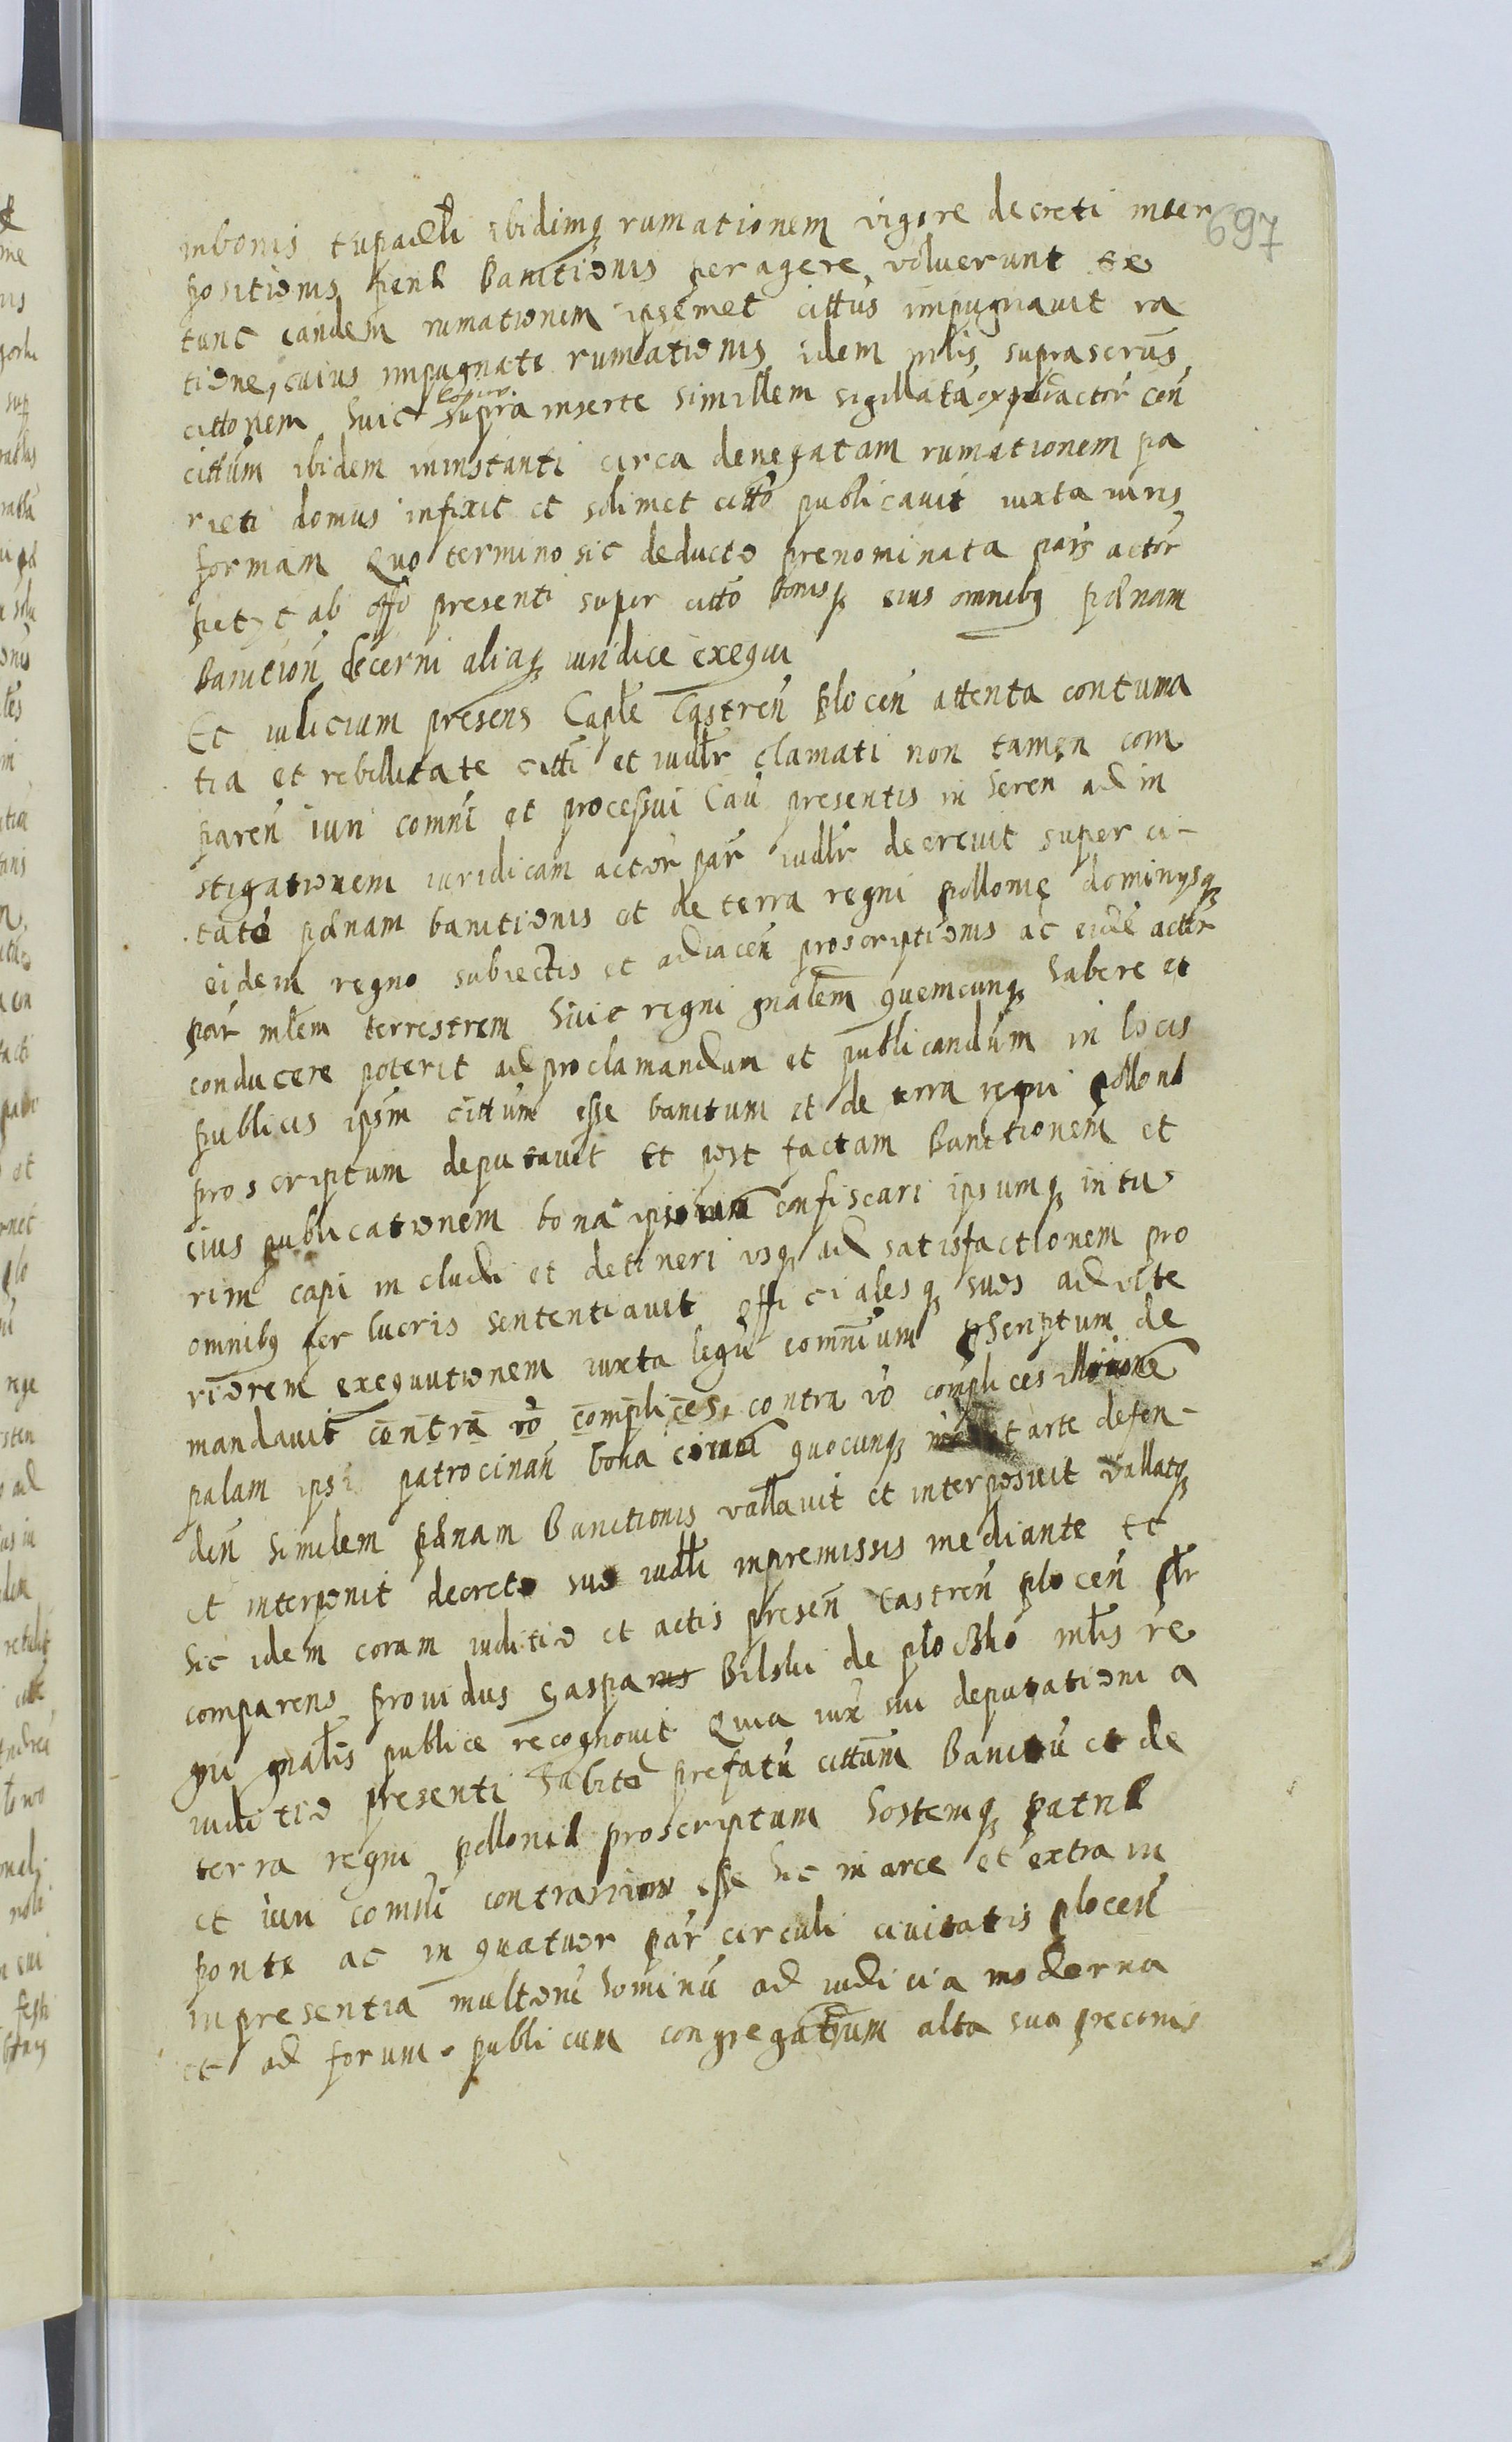 697
inbonis tupadli ibidimq rumationem vigore decreti inter
positionis penæ Banitionis peragere voluerunt Ex
tunc eandem rumationem ipsemet cittus impugnauit ra
tione, cuius impugnate rumationis idem mlis suprascrus
cittonem huic supra inserte simillem sigillatã ex pte actor con
cittum ibidem ininstanti circa denegatam rumationem pa
rieti domus infixit et solimet citto publicauit iuxta iuris
formam Quo termino sic deducto prenominata pars actor
petyt ab offo presenti super citto bonisq eius omnibq pænam
Banition decerni aliaq iuridice exequi
Et iudicium presens Caple Castren plocen attenta contuma
tia et rebillitate citti et iudlr clamati non tamen com
paren iuri comni et processui Cau presentis in heren ad in
stigationem iuridicam actor par iudlr decreuit super ci-
tato pænam banitionis et de terra regni pollonie dominysq
eidem regno subiectis et adiacen proscriptionis ac eidẽ actor
par mlem terrestrem huic regni gnalem quemcunq habere et
conducere poterit ad proclamandum et publicandum in locis
publicis ipsm cittum esse banitum et de terra regni pollonæ
proscriptum deputauit Et post factam Banitionem et
eius publicationem bona ipsorum confiscari ipsumq in tur
rim capi includi et detineri usq ad satisfactionem pro
omnibq per lucris sententiauit officialesq suos ad ulte
riorem exequutionem iuxta legũ comnium pscriptum de
mandauit contra vo complices contra vo complices
palam ipsi patrocinan bona quocunq arte defen-
den similem pænam Banitionis vallauit et interposuit vallatq
et interponit decreto suo iudlli inpremissis mediante Et
hic idem coram iuditio et actis presen Castren plocen plr
comparens prouidus Gaspar Bilski de ploczko mlis re
gni gnalis publice recognouit Quia iux sui deputationi a
iuditio presenti habito prefatũ cittum Banitũ et de
terra regni pollonie proscriptum hostemq patriæ
et iuri comni contrarium esse hic in arce et extra in
ponte ac in quatuor par circuli ciuitatis plocen
inpresentia multorũ hominũ ad iudicia moderna
et ad forum publicum congregatum alta sua preconis